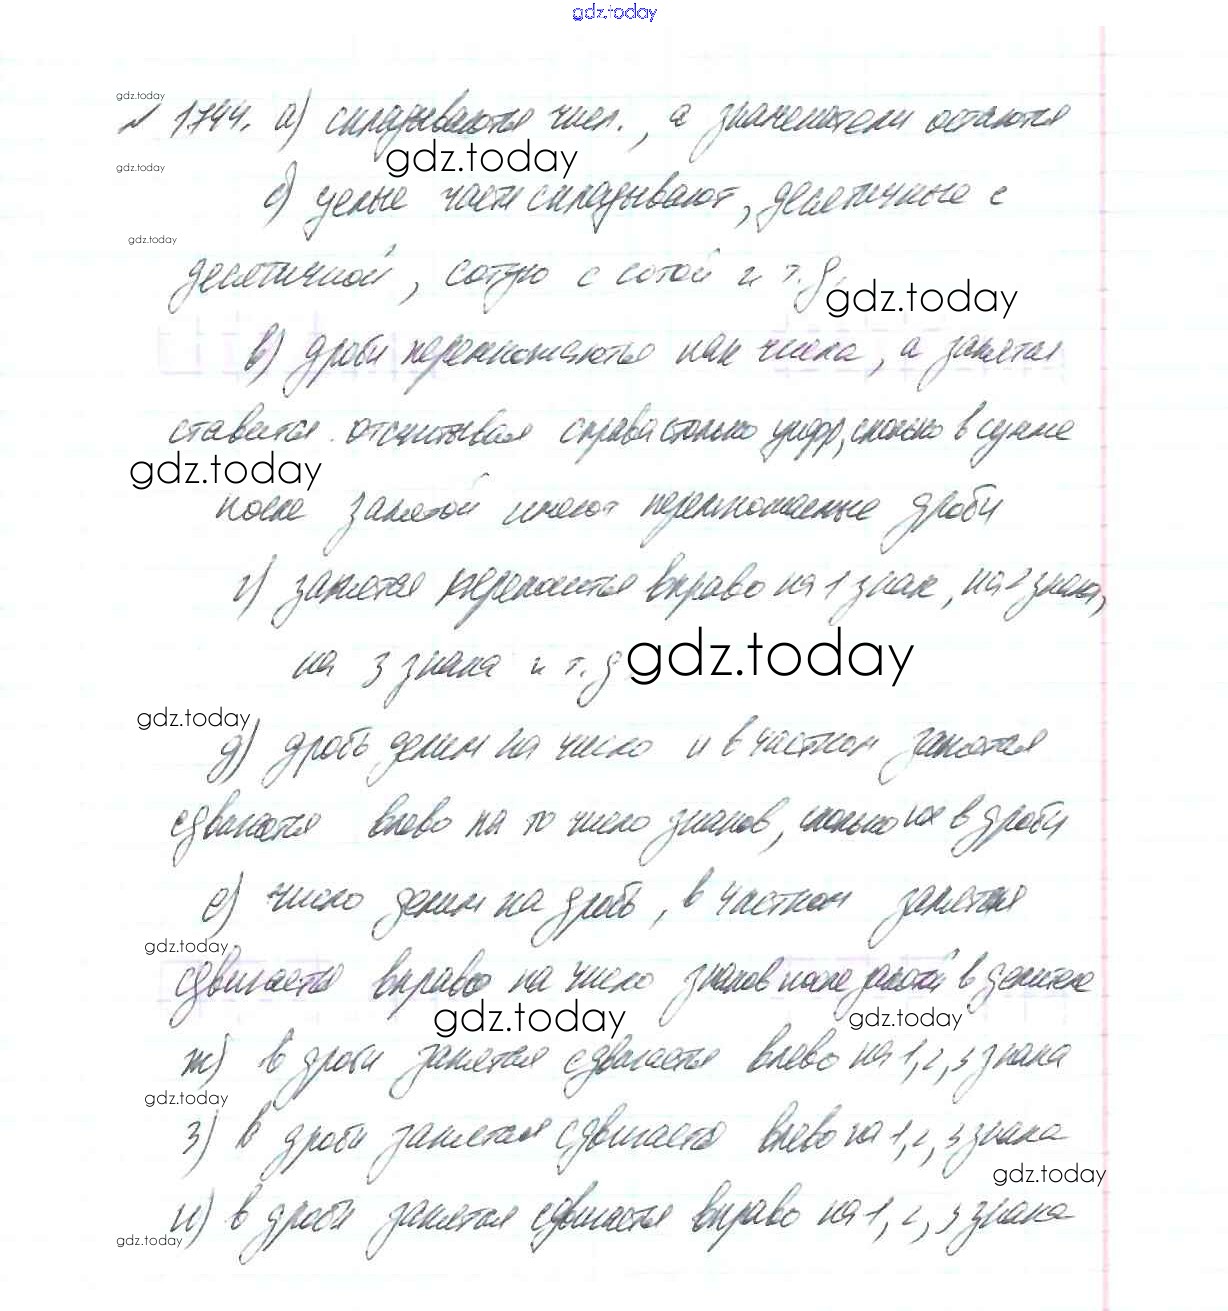 gdz.today
gdz.today
№ 1744. а) складываются числ., а знаменатели остаются
gdz.today
gdz.today
б) целые части складывают, десятичные с
gdz.today
десятичной, сотую с сотой и т.д.
gdz.today
в) дроби перемножаются как числа, а запятая
ставится отсчитывая справа столько цифр, сколько в сумме
gdz.today
после запятой имеют перемножаемые дроби
г) запятая переносится вправо на 1 знак, на 2 знака,
на 3 знака и т.д
gdz.today
gdz.today
д) дробь делим на число и в частном запятая
сдвигается влево на то число знаков, сколько их в дроби
е) число делим на дробь, в частном запятая
gdz.today
сдвигается вправо на число знаков после запятой в делителе
gdz.today
gdz.today
ж) в дроби запятая сдвигается влево на 1, 2, 3 знака
gdz.today
з) в дроби запятая сдвигается влево на 1, 2, 3 знака
gdz.today
и) в дроби запятая сдвигается вправо на 1, 2, 3 знака
gdz.today